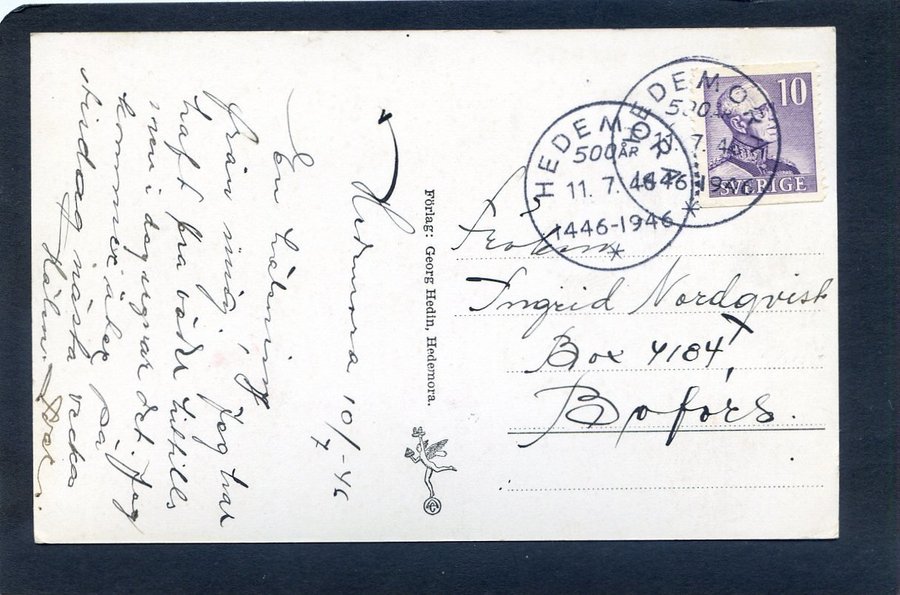 Hedemora 10/7 -46
En hälsning
från mig, Jag har
haft bra väder hittills
men i dag regnar det. Jag
kommer åka på
tisdag nästa vecka
Förlag: Georg Hedin, Hedemora.
HEDEMORA
500 ÅR
11. 7. 46
1446-1946
HEDEMORA
500 ÅR
11. 7. 46
1446-1946
10
SVERIGE
Fröken
Ingrid Nordqvist
Box 4184
Bofors.